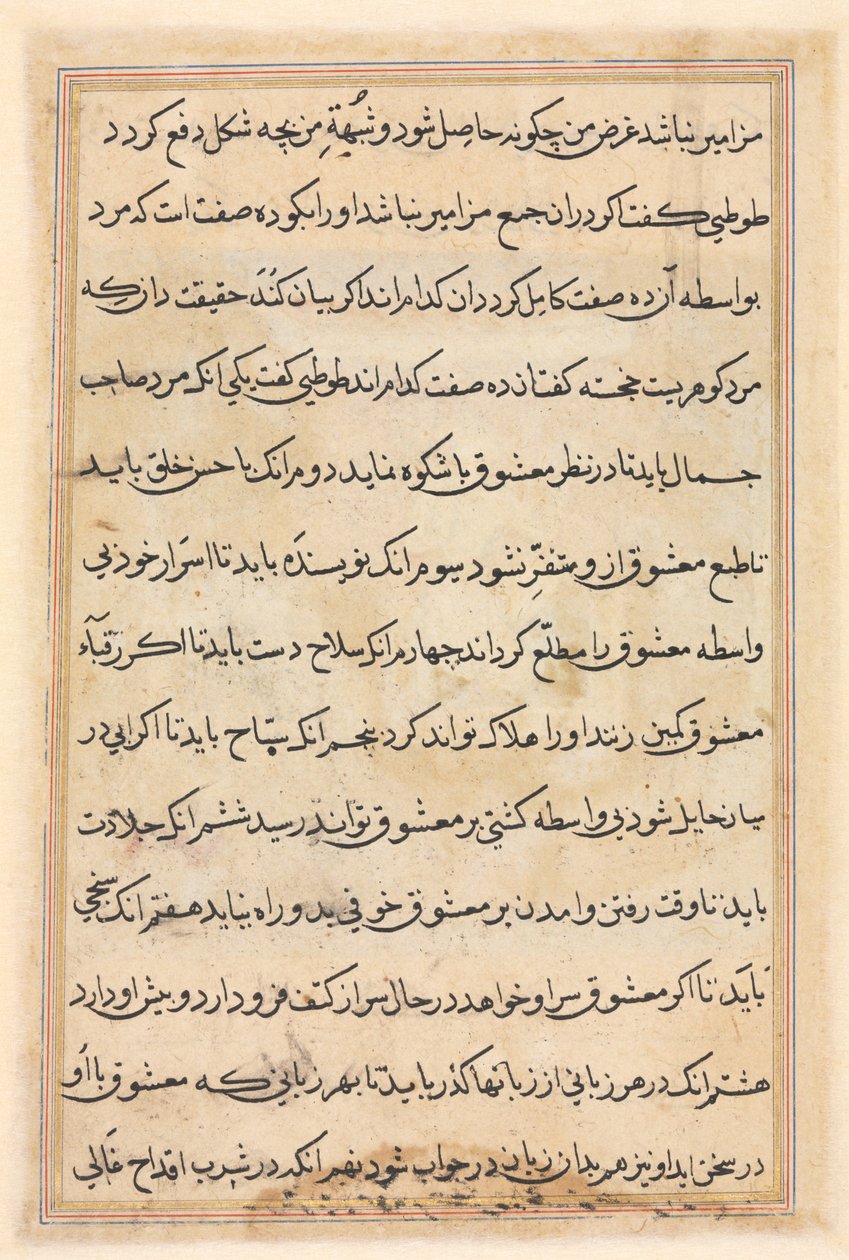 مزامیر نباشد غرض من چکونه حاصِل شود و شُبهةِ من بچه شکل دفع کردد
طوطیی کفت اکر دران جمع مزامیر نباشد او را بکو ده صفت است که مرد
بواسطه آن ده صفت کامِل کردد ان کدام اند اکر بیان کُنَدَ حقیقت دان کِه
مرد کوهریست خجسته کفت ان ده صفت کدام اند طوطیی کفت یکی انک مرد صاحب
جمال باید تا در نظر معشوق با شکوه نماید دوم انک با حسن خلق باید
تا طبع معشوق از و متنفّرِ نشود سیوم انک نویسندَه باید تا اسَرار خود بی
واسطه معشوق را مطلّع کرداند چهارم انک سلاح دست باید تا اکر رقبَآء
معشوق کمین زنند او را هلاک تواند کرد پنجم انک سبّاح باید تا اکر ابی در
میان حایل شود بی واسطه کشتیی بر معشوق تواند رسید ششم انک جلادت
باید تا وقت رفتن و امدن بر معشوق خوفی بدو راه نیابد هفتم انک سخی
بایَد تا اکر معشوق سر او خواهد در حال سر از کتف فرود ارد و پیش او دارد
هشتم انک در هر زبانی از زبانها کذر باید تا بهر زبانی که معشوق با اُو
در سخن اید او نیز هم بدان زبان در جواب شود نهم انکه در شرب اقداح غَالی